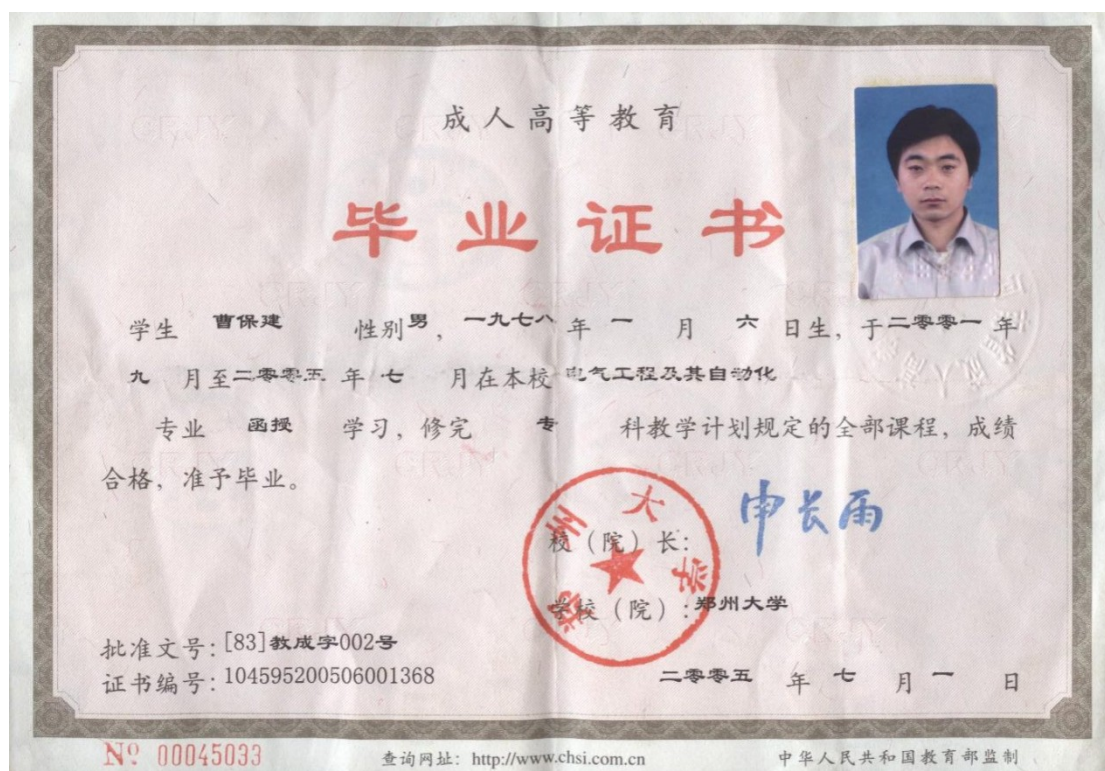 成人高等教育
毕业证书
学生 曹保建 性别男，一九七八年 一 月 六 日生，于二零零一年
九 月至二零零五 年 七 月在本校 电气工程及其自动化
专业 函授 学习，修完 专 科教学计划规定的全部课程，成绩
合格，准予毕业。
校（院）长：申长雨
郑州大学
学校（院）：郑州大学
批准文号：[83]教成字002号
证书编号：104595200506001368
二零零五 年 七 月 一 日
Nº 00045033
查询网址：http://www.chsi.com.cn
中华人民共和国教育部监制